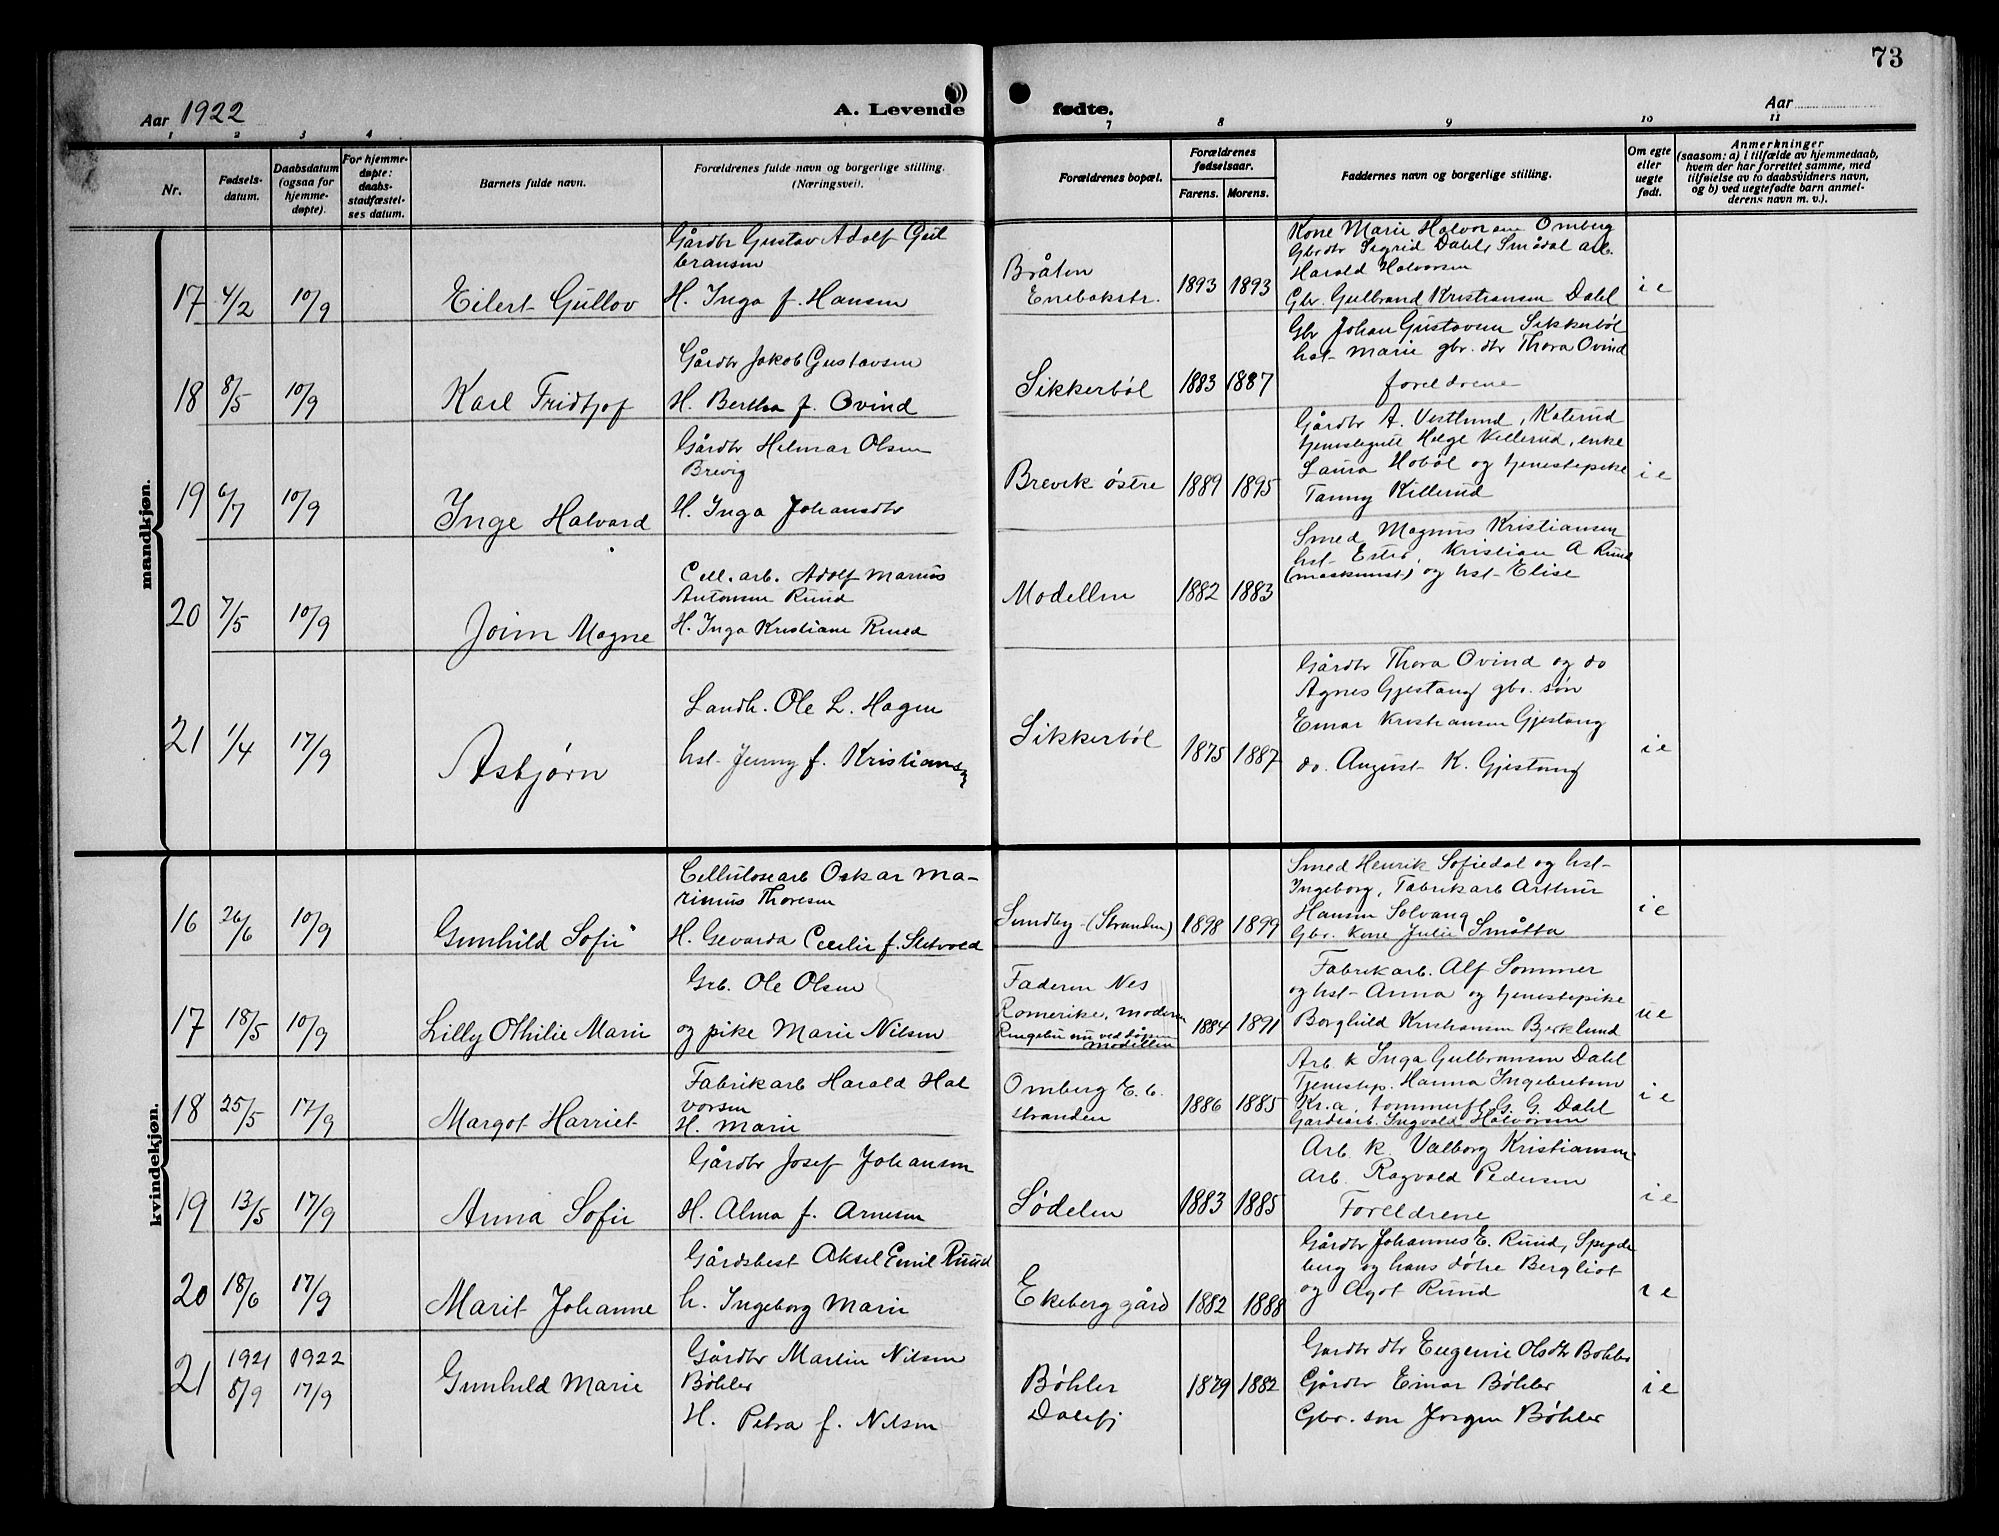 73
Aar 1922
A. Levende fødte.
Aar
1 2 3 4 7 8 9 10 11
Nr.
Fødsels-
datum.
Daabsdatum
(ogsaa for
hjemme-
døpte).
For hjemme-
døpte:
daabs-
stadfæstel-
ses datum.
Barnets fulde navn.
Forældrenes fulde navn og borgerlige stilling.
(Næringsvei).
Forældrenes bopæl.
Forældrenes
fødselsaar.
Farens. Morens.
Faddernes navn og borgerlige stilling.
Om egte
eller
uegte
født.
Anmerkninger
(saasom: a) i tilfælde av hjemmedaab,
hvem der har forrettet samme, med
tilføielse av to daabsvidners navn,
og b) ved uegtefødte barn anmel-
derens navn m. v.).
mandkjøn.
17 4/2 10/9 Eilert Gullov
Gårdbr Gustav Adolf Gul
bransen
H. Inga f. Hansen
Bråten
Enebakstr.
1893 1893
Kone Marie Halvorsen Omberg
Gbrdtr Sigrid Dahl, Smådal arb.
Harald Halvorsen
Gbr. Gulbrand Kristiansen Dahl
i e
18 8/5 10/9 Karl Fridtjof
Gårdbr Jakob Gustavsen
H. Bertha f. Ovind
Sikkerbøl
1883 1887
Gbr Johan Gustavsen Sikkerbøl
hst. Marie gbr. dtr Thora Ovind
foreldrene
19 6/7 10/9 Inge Halvard
Gårdbr Helmar Olsen
Brevig
H. Inga Johansdtr
Brevik østre
1889 1895
Gårdbr A. Vestlund, Katerud
tjenestegutt Helge Killerud, enke
Laura Hobøl og tjenestepike
Fanny Killerud
i e
20 7/5 10/9 Joim Magne
Cell. arb. Adolf Marius
Antonsen Ruud
H. Inga Kristiane Ruud
Modellen
1882 1883
Smed Magnus Kristiansen
hst. Ester, Kristian A Ruud
(maskinist) og hst. Elise
21 1/4 17/9 Asbjørn
Landh. Ole L. Hagen
hst. Jenny f. Kristiansen
Sikkerbøl
1875 1887
Gårdbr Thora Ovind og do
Agnes Gjestang gbr. søn
Einar Kristiansen Gjestang
do. August K. Gjestang
i e
kvindekjøn.
16 26/6 10/9 Gunhild Sofie
Cellulosearb Oskar Ma-
rinius Thoresen
H. Gevarda Cecilie f. Sletvold
Sundby (Stranden)
1898 1899
Smed Henrik Sofiedal og hst.
Ingeborg, Fabrikarb Arthur
Hansen Solvang
Gbr. kone Julie Småtta
i e
17 18/5 10/9 Lilly Othilie Marie
Grb. Ole Olsen
og pike Marie Nilsen
Faderen Nes
Romerike, moderen
Ringebu nu ved
Modellen
1884 1891
Fabrikarb. Alf Sommer
og hst. Anna og tjenestepike
Borghild Kristiansen Bjerklund
u e
18 25/5 17/9 Margot Harriet
Fabrikarb Harald Hal
vorsen
H. Marie
Omberg E. b.
stranden
1886 1885
Arb. k Inga Gulbransen Dahl
Tjenestep. Hanna Ingebretsen
Kr.a, tommerfl. G. G. Dahl
Gårdsarb. Ingvald Halvorsen
i e
19 13/5 17/9 Anna Sofie
Gårdbr Josef Johansen
H. Alma f. Arnesen
Sødelen
1883 1885
Arb. k. Valborg Kristiansen
Arb. Ragvald Pedersen
Foreldrene
i e
20 18/6 17/9 Marit Johanne
Gårdsbest Aksel Emil Ruud
h. Ingeborg Marie
Ekeberg gård
1882 1888
Gårdbr Johannes E. Ruud, Spyde
berg og hans døtre Bergliot
og Agot Ruud
i e
21 1921 8/9 1922 17/9 Gunhild Marie
Gårdbr Martin Nilsen
Bøhler
H. Petra f. Nilsen
Bøhler
Dalefj
1879 1882
Gardbr dtr Eugenie Olsdtr Bøhler
Gårdbr Einar Bøhler
Gbr. søn Jørgen Bøhler
i e